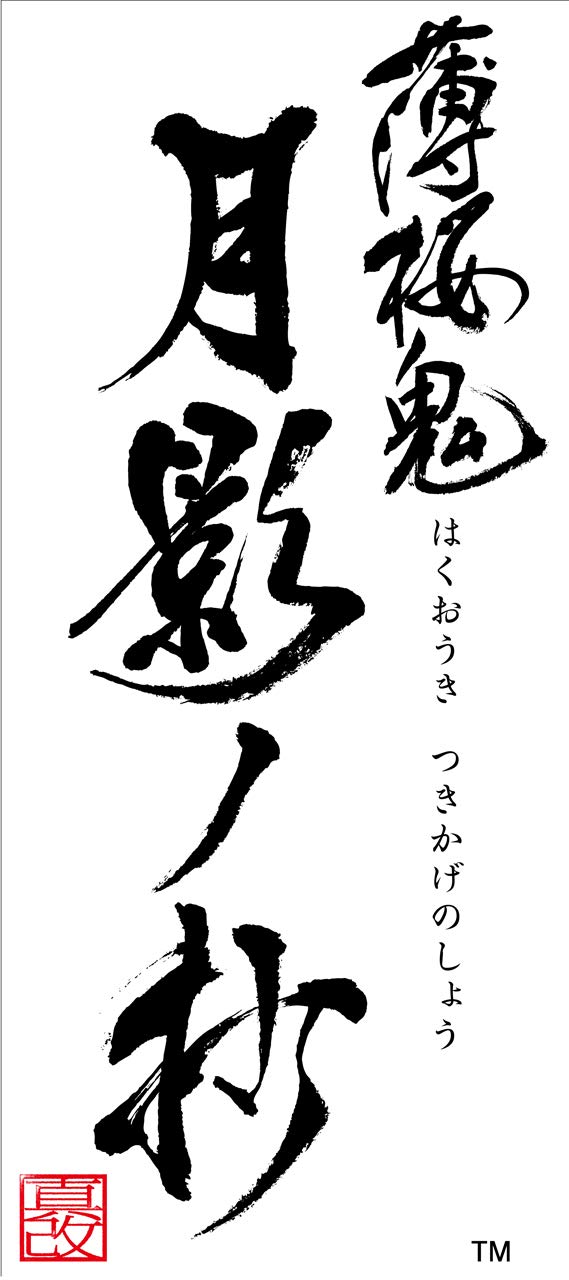 薄桜鬼
はくおうき　つきかげのしょう
月影ノ抄
真改
TM